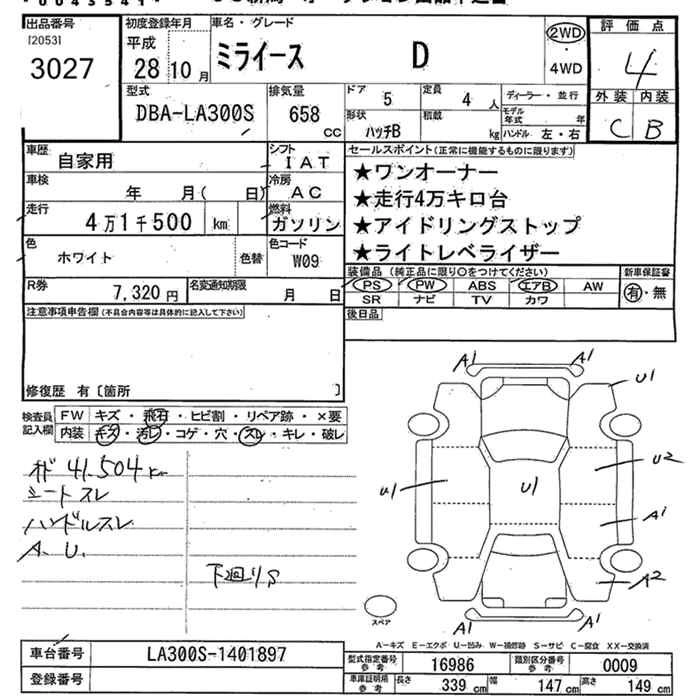 出品番号 初度登録年月 車名・グレード 評価点
[2053] 平成 ミライース D 2WD 4
3027 28 10月 4WD 外装 内装
C B
型式 排気量 ドア 5 定員 4人 ディーラー・並行
DBA-LA300S 658 cc 形状 ハッチB 積載 kg モデル年式 年
ハンドル 左・右
車歴 自家用 シフト IAT セールスポイント(正常に機能するものに限ります)
車検 年 月( 日) 冷房 AC ★ワンオーナー
★走行4万キロ台
走行 4万1千500 km 燃料 ガソリン ★アイドリングストップ
色 ホワイト 色替 色コード W09 ★ライトレベライザー
装備品(純正品に限り○をつけてください) 新車保証書
R券 7,320円 名変通知期限 月 日 PS PW ABS エアB AW 有・無
SR ナビ TV カワ
注意事項申告欄(不具合内容等は具体的に記入して下さい) 後日品
修復歴 有〔箇所 〕
検査員記入欄 FW キズ・飛石・ヒビ割・リペア跡・×要
内装 キズ・汚レ・コゲ・穴・スレ・キレ・破レ
A1 A1
U1
U2
U1 U1
A1
A2
A1 A1
スペア
41,504km
シートスレ
ハンドルスレ
A. U.
下回りS
A-キズ E-エクボ U-凹み W-補修跡 S-サビ C-腐食 XX-交換済
車台番号 LA300S-1401897 型式指定番号 参考 16986 類別区分番号 参考 0009
登録番号 車庫証明用 参考 長さ 339cm 幅 147cm 高さ 149cm